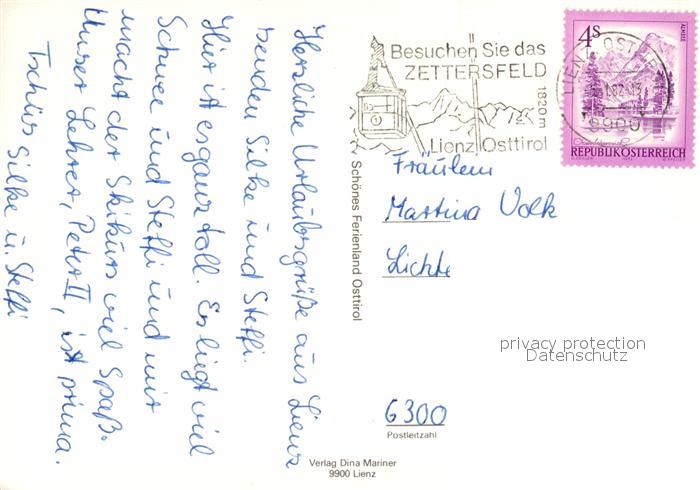 Herzliche Urlaubsgrüße aus Lienz
senden Silke und Steffi.
Hier ist es ganz toll. Es liegt viel
Schnee und Steffi und mir
macht der Skikurs viel Spaß.
Unser Lehrer, Peter II, ist prima.
Tschüs Silke u. Steffi
Schönes Ferienland Osttirol
Besuchen Sie das
ZETTERSFELD
1820 m
Lienz Osttirol
4S
ALMSEE
REPUBLIK ÖSTERREICH
9900
Fräulein
Martina Volk
Lichte
privacy protection
Datenschutz
6300
Postleitzahl
Verlag Dina Mariner
9900 Lienz